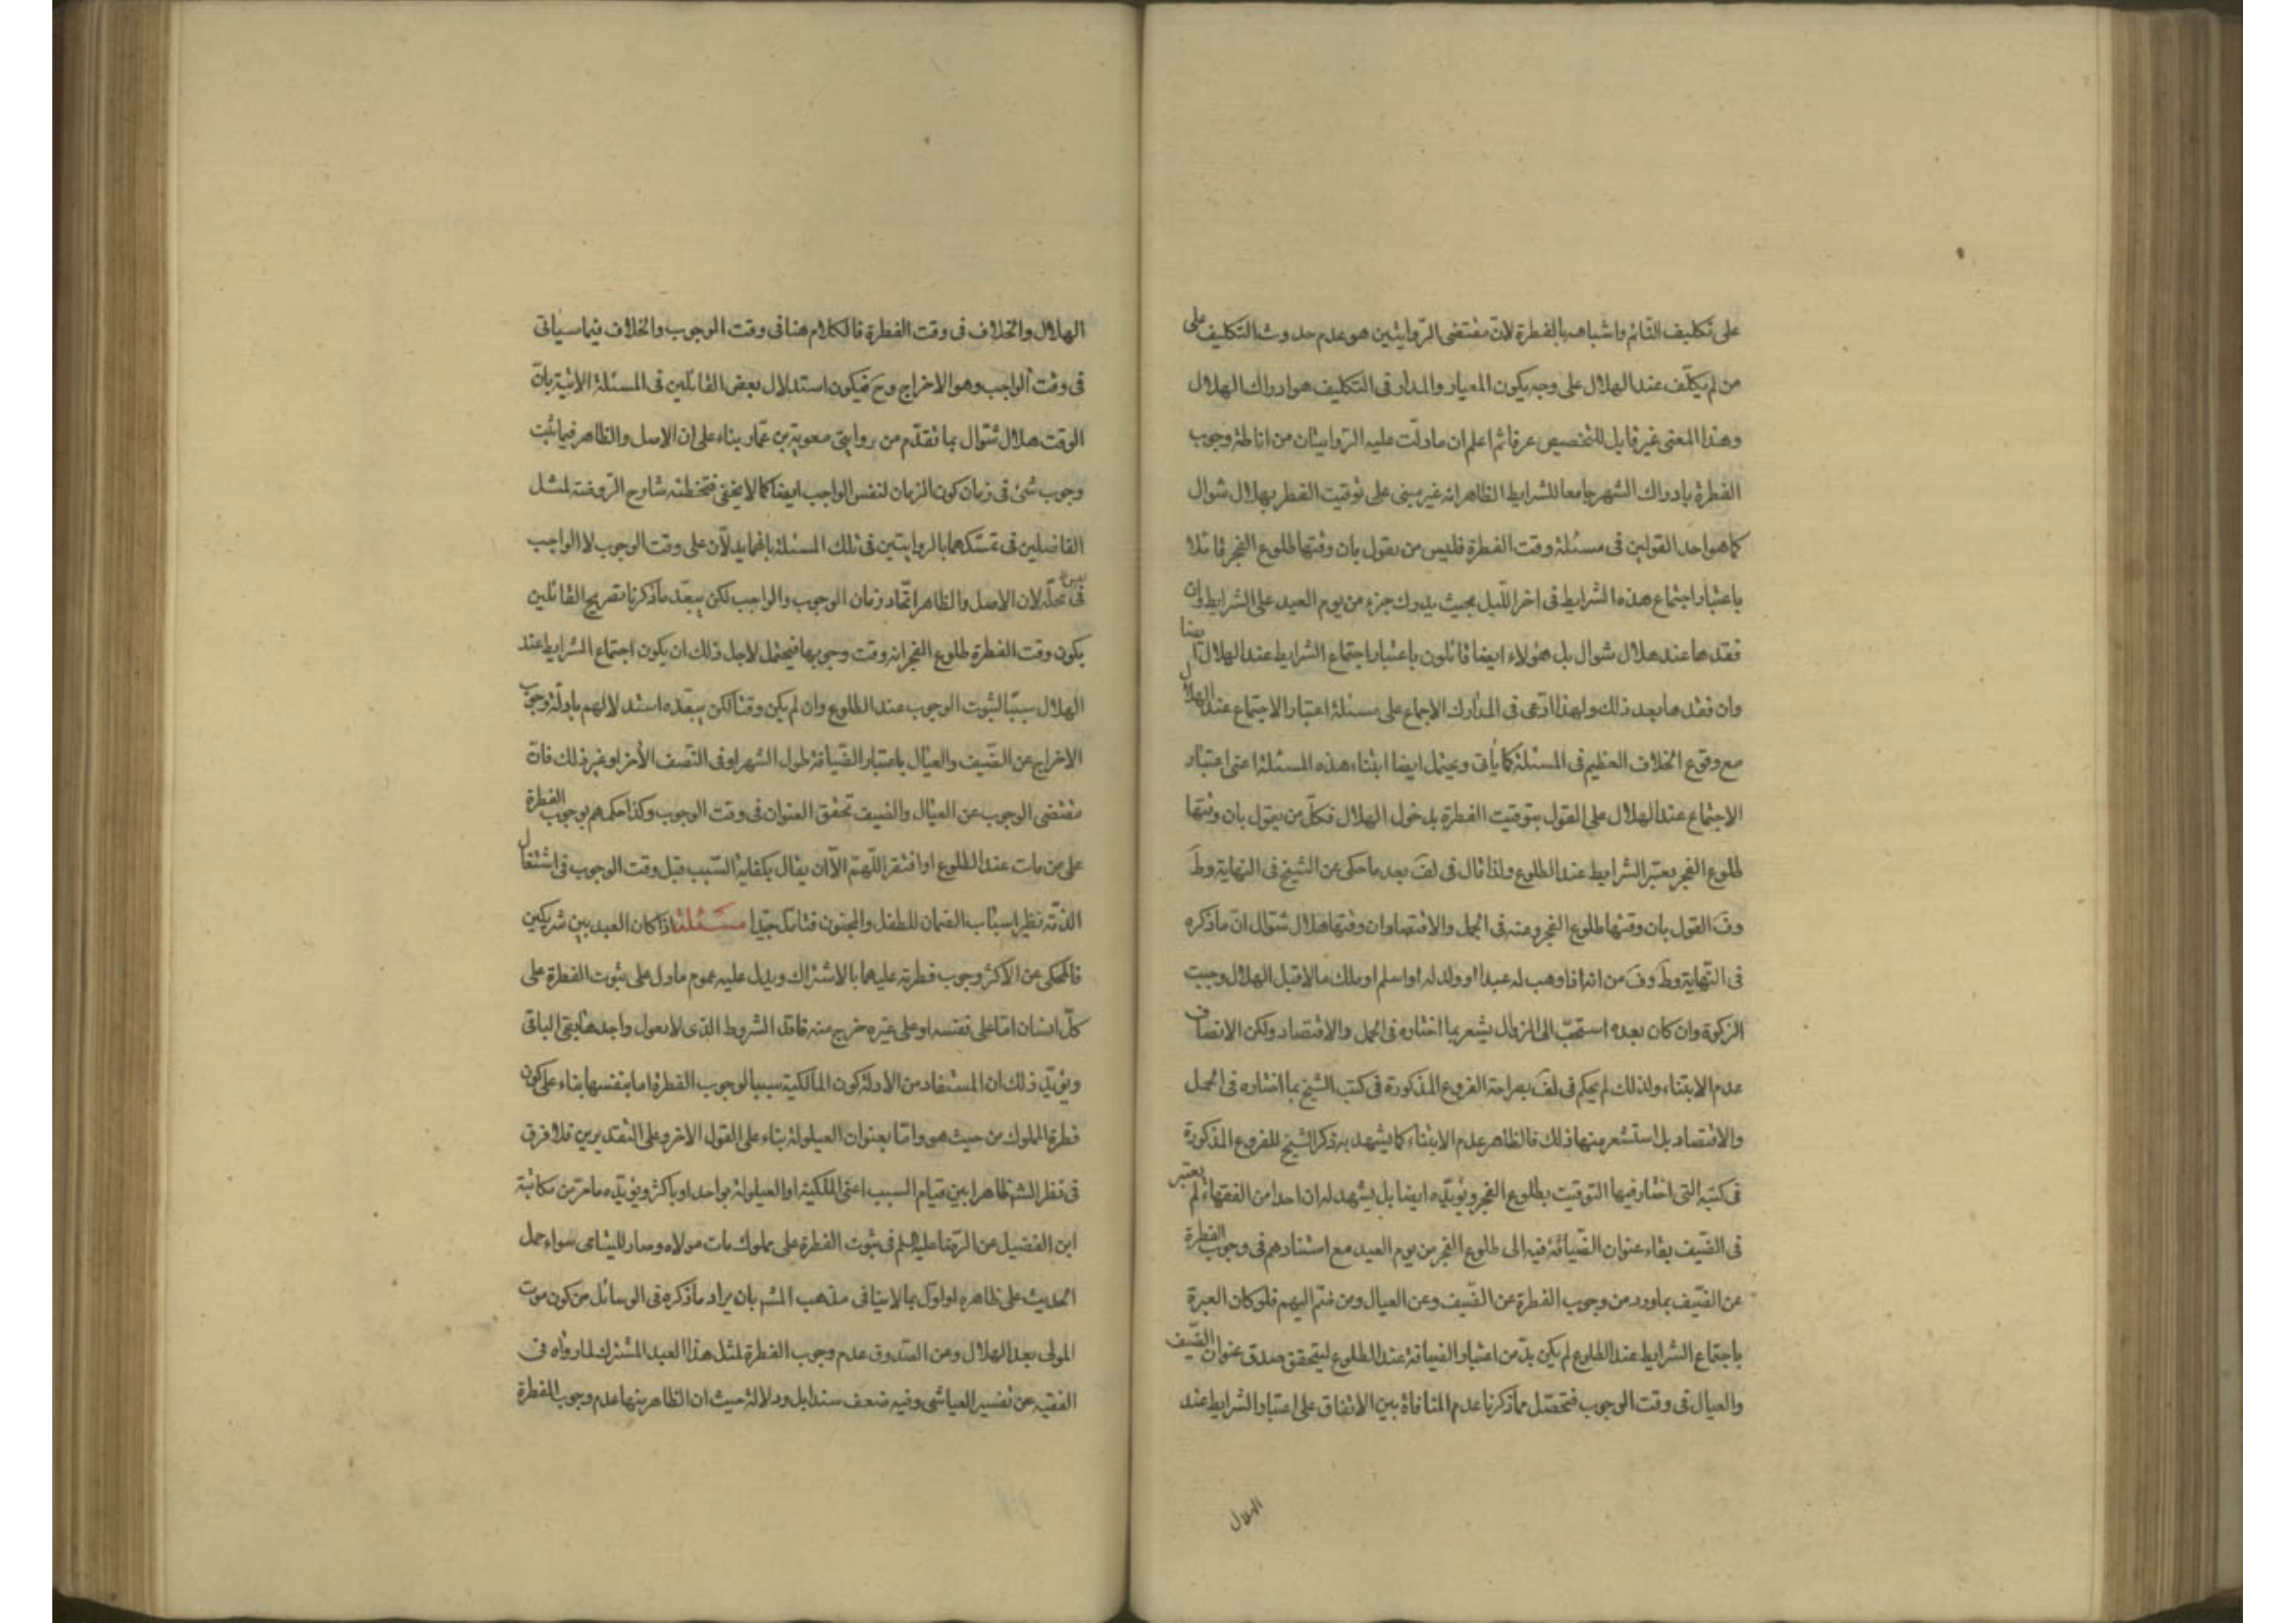 على تكليف القائم واشباهه بالفطرة لانّ مقتضى الرّوايتين هو عدم حدوث التكليف على
من لم يكلّف عند الهلال على وجه يكون المعيار والمدار فى التكليف هو ادراك الهلال
وهذا المعنى غير قابل للتخصيص عرفا ثم اعلم ان ما دلّت عليه الرّوايتان من اناطة وجوب
الفطرة بادراك الشهر جامعا للشرايط الظاهر انه غير مبنى على توقيت الفطر بهلال شوال
كما هو احد القولين فى مسئلة وقت الفطرة فليس من يقول بان وقتها طلوع الفجر قائلا
باعتبار اجتماع هذه الشرايط فى اخر اللّيل بحيث يدرك جزء من يوم العيد على الشرايط وان
فقدها عند هلال شوال بل هؤلاء ايضا قائلون باعتبار اجتماع الشرايط عند الهلال ايضا
وان فقدها بعد ذلك ولهذا ادّعى فى المدارك الاجماع على مسئلة اعتبار الاجتماع عند الهلال
مع وقوع الخلاف العظيم فى المسئلة كما يأتى ويحتمل ايضا ابتناء هذه المسئلة اعنى اعتبار
الاجتماع عند الهلال على القول بتوقيت الفطرة بدخول الهلال فكلّ من يقول بان وقتها
طلوع الفجر يعتبر الشرايط عند الطلوع ولذا قال فى لف بعد ما حكى عن الشيخ فى النهاية وط
وف القول بان وقتها طلوع الفجر وعنه فى الجمل والاقتصاد ان وقتها هلال شوال انّ ما ذكره
فى النّهاية وط وف من انه اذا وهب له عبدا او ولد له او اسلم او ملك مالا قبل الهلال وجبت
الزكوة وان كان بعده استحبّ الى الزوال يشعر بما اختاره فى الجمل والاقتصاد ولكن الانصاف
عدم الابتناء ولذلك لم يحكم فى لف بصراحة الفروع المذكورة فى كتب الشيخ بما اختاره فى الجمل
والاقتصاد بل استشعر منها ذلك فالظاهر عدم الابتناء كما يشهد به ذكر الشيخ للفروع المذكورة
فى كتبه التى اختار فيها التوقيت بطلوع الفجر ويؤيّده ايضا بل يشهد له ان احدا من الفقهاء لم يعتبر
فى الضّيف بقاء عنوان الضّيافة فيه الى طلوع الفجر من يوم العيد مع استنادهم فى وجوب الفطرة
عن الضّيف بما ورد من وجوب الفطرة عن الضّيف وعن العيال ومن ضمّ اليهم فلو كان العبرة
باجتماع الشرايط عند الطلوع لم يكن بدّ من اعتبار الضيافة عند الطلوع ليتحقق صدق عنوان الضّيف
والعيال فى وقت الوجوب فتحصّل مما ذكرنا عدم المنافاة بين الاتفاق على اعتبار الشرايط عند
الهلال
الهلال والخلاف فى وقت الفطرة فالكلام هنا فى وقت الوجوب والخلاف فيما سياتى
فى وقت الواجب وهو الاخراج وح فيكون استدلال بعض القائلين فى المسئلة الاتية بانّ
الوقت هلال شوال بما تقدّم من روايتى معوية بن عمّار بناء على ان الاصل والظاهر فيما ثبت
وجوب شئ فى زمان كون الزمان لنفس الواجب ايضا كما لا يخفى فتخطئة شارح الرّوضة لمثل
الفاضلين فى تمسّكهما بالروايتين فى تلك المسئلة بانهما يدلّان على وقت الوجوب لا الواجب
ليس فى محلّه لان الاصل والظاهر اتّحاد زمان الوجوب والواجب لكن يبعّد ما ذكرنا تصريح القائلين
بكون وقت الفطرة طلوع الفجر انه وقت وجوبها فيحتمل لاجل ذلك ان يكون اجتماع الشرايط عند
الهلال سببا لثبوت الوجوب عند الطلوع وان لم يكن وقتا لكن يبعّده استدلالهم بادلّة وجوب
الاخراج عن الضّيف والعيال باعتبار الضّيافة طول الشهر او فى النّصف الأخر او غير ذلك فانّ
مقتضى الوجوب عن العيال والضيف تحقق العنوان فى وقت الوجوب وكذا حكمهم بوجوب الفطرة
على من مات عند الطلوع او افتقر اللّهمّ الّا ان يقال بكفاية السّبب قبل وقت الوجوب فى اشتغال
الذمّة نظير اسباب الضمان للطفل والمجنون فتامّل جيّدا مسئلة اذا كان العبد بين شريكين
فالمحكى عن الاكثر وجوب فطرته عليهما بالاشتراك ويدل عليه عموم ما دل على ثبوت الفطرة على
كلّ انسان امّا على نفسه او على غيره خرج منه فاقد الشروط الذى لا يعول واجدها بقى الباقى
ويؤيّد ذلك ان المستفاد من الادلة كون المالكية سببا لوجوب الفطرة اما بنفسها بناء على كون
فطرة المملوك من حيث هو وامّا بعنوان العيلولة بناء على القول الاخر وعلى التقديرين فلا فرق
فى نظر الشه ظاهرا بين قيام السبب اعنى الملكية او العيلولة بواحد او باكثر ويؤيّده ما مرّ من مكاتبة
ابن الفضيل عن الرّضا عليه السلم فى ثبوت الفطرة على مملوك مات مولاه وصار لليتامى سواء حمل
الحديث على ظاهره او اوّل بما لا ينافى مذهب المشه بان يراد ما ذكره فى الوسائل من كون موت
المولى بعد الهلال وعن الصّدوق عدم وجوب الفطرة لمثل هذا العبد المشترك لما رواه فى
الفقيه عن تفسير العياشى وفيه ضعف سندا بل ودلالة حيث ان الظاهر منها عدم وجوب الفطرة